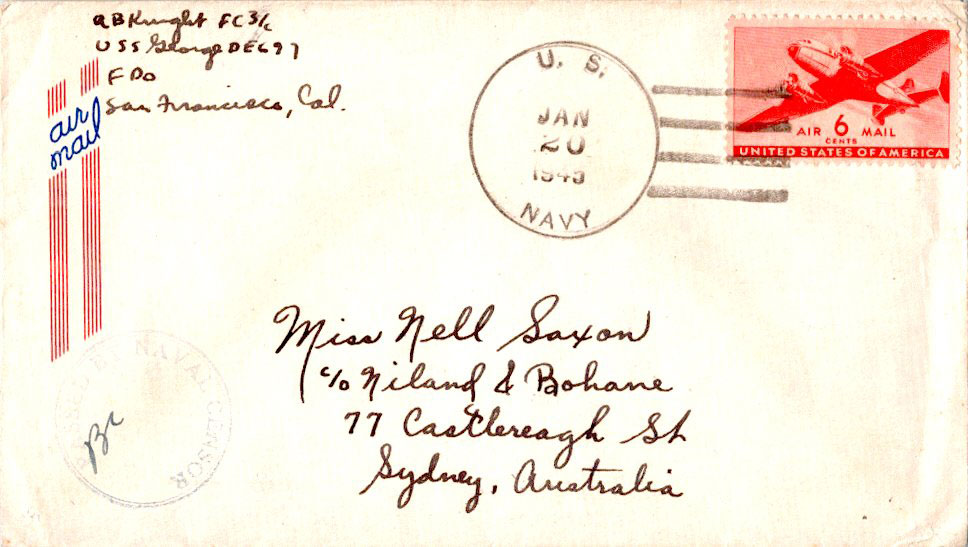 RB Knight FC 3/c
USS George DE697
FPO
San Francisco, Cal.
air
mail
U. S.
JAN
20
1945
NAVY
AIR 6 MAIL
CENTS
UNITED STATES OF AMERICA
Miss Nell Saxon
c/o Niland & Bohane
77 Castlereagh St
Sydney, Australia
PASSED BY NAVAL CENSOR